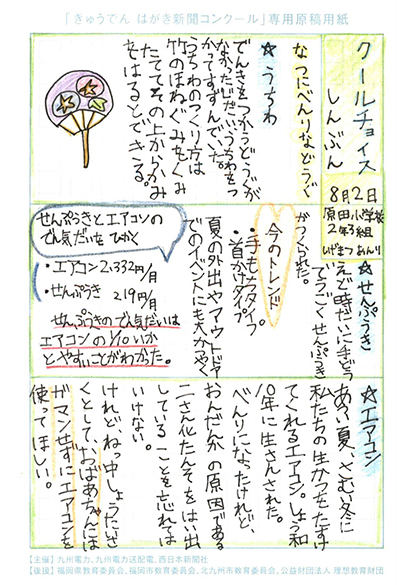 「きゅうでん はがき新聞コンクール」専用原稿用紙
クールチョイス
しんぶん
8月2日
原田小学校
2年3組
しげまつ あんり
なつにべんりなどうぐ
☆うちわ
でんきをつかうどうぐが
なかったじだい、うちわをつ
かってすずんでいた。
うちわのつくり方は
竹のほねぐみをくみ
たててその上からかみ
をはるとできる。
☆せんぷうき
えど時だいに手どう
でうごくせんぷうき
がつくられた。
今のトレンド
・手もちタイプ
・首かけタイプ
夏の外出やアウトドア
でのイベントにも大かつやく
せんぷうきとエアコンの
でん気だいをひかく
・エアコン 2,332円/月
・せんぷうき 219円/月
せんぷうきのでん気だいは
エアコンの1/10いか
とやすいことがわかった。
☆エアコン
あつい夏、さむい冬に
私たちの生かつをたすけ
てくれるエアコン。しょう和
10年に生さんされた。
べんりになったけれど、
おんだんかの原因である
二さん化たんそをはい出
していることを忘れては
いけない。
けれど、ねっ中しょうたいさ
くとして、おばあちゃんには
ガマンせずにエアコンを
使ってほしい。
【主催】九州電力、九州電力送配電、西日本新聞社
【後援】福岡県教育委員会、福岡市教育委員会、北九州市教育委員会、公益財団法人 理想教育財団